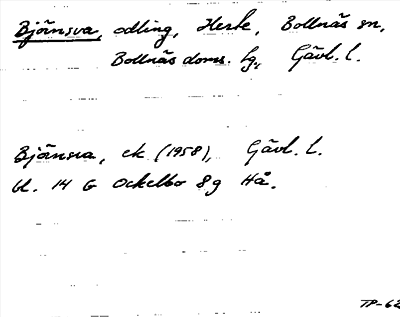 Björnsva, odling, Herte, Bollnäs sn,
Bollnäs doms. lg, Gävl. l.
Björnsva, ek (1958), Gävl. l.
bl. 14 G Ockelbo 8g Hå.
TP-62